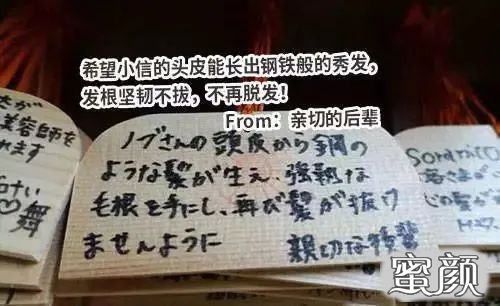 希望小信的头皮能长出钢铁般的秀发，
发根坚韧不拔，不再脱发！
From：亲切的后辈
ノブさんの頭皮から鋼の
ような髪が生え、強靱な
毛根を手にし、再び髪が抜け
ませんように
親切な後輩
美容師を
れます
舞
蜜颜